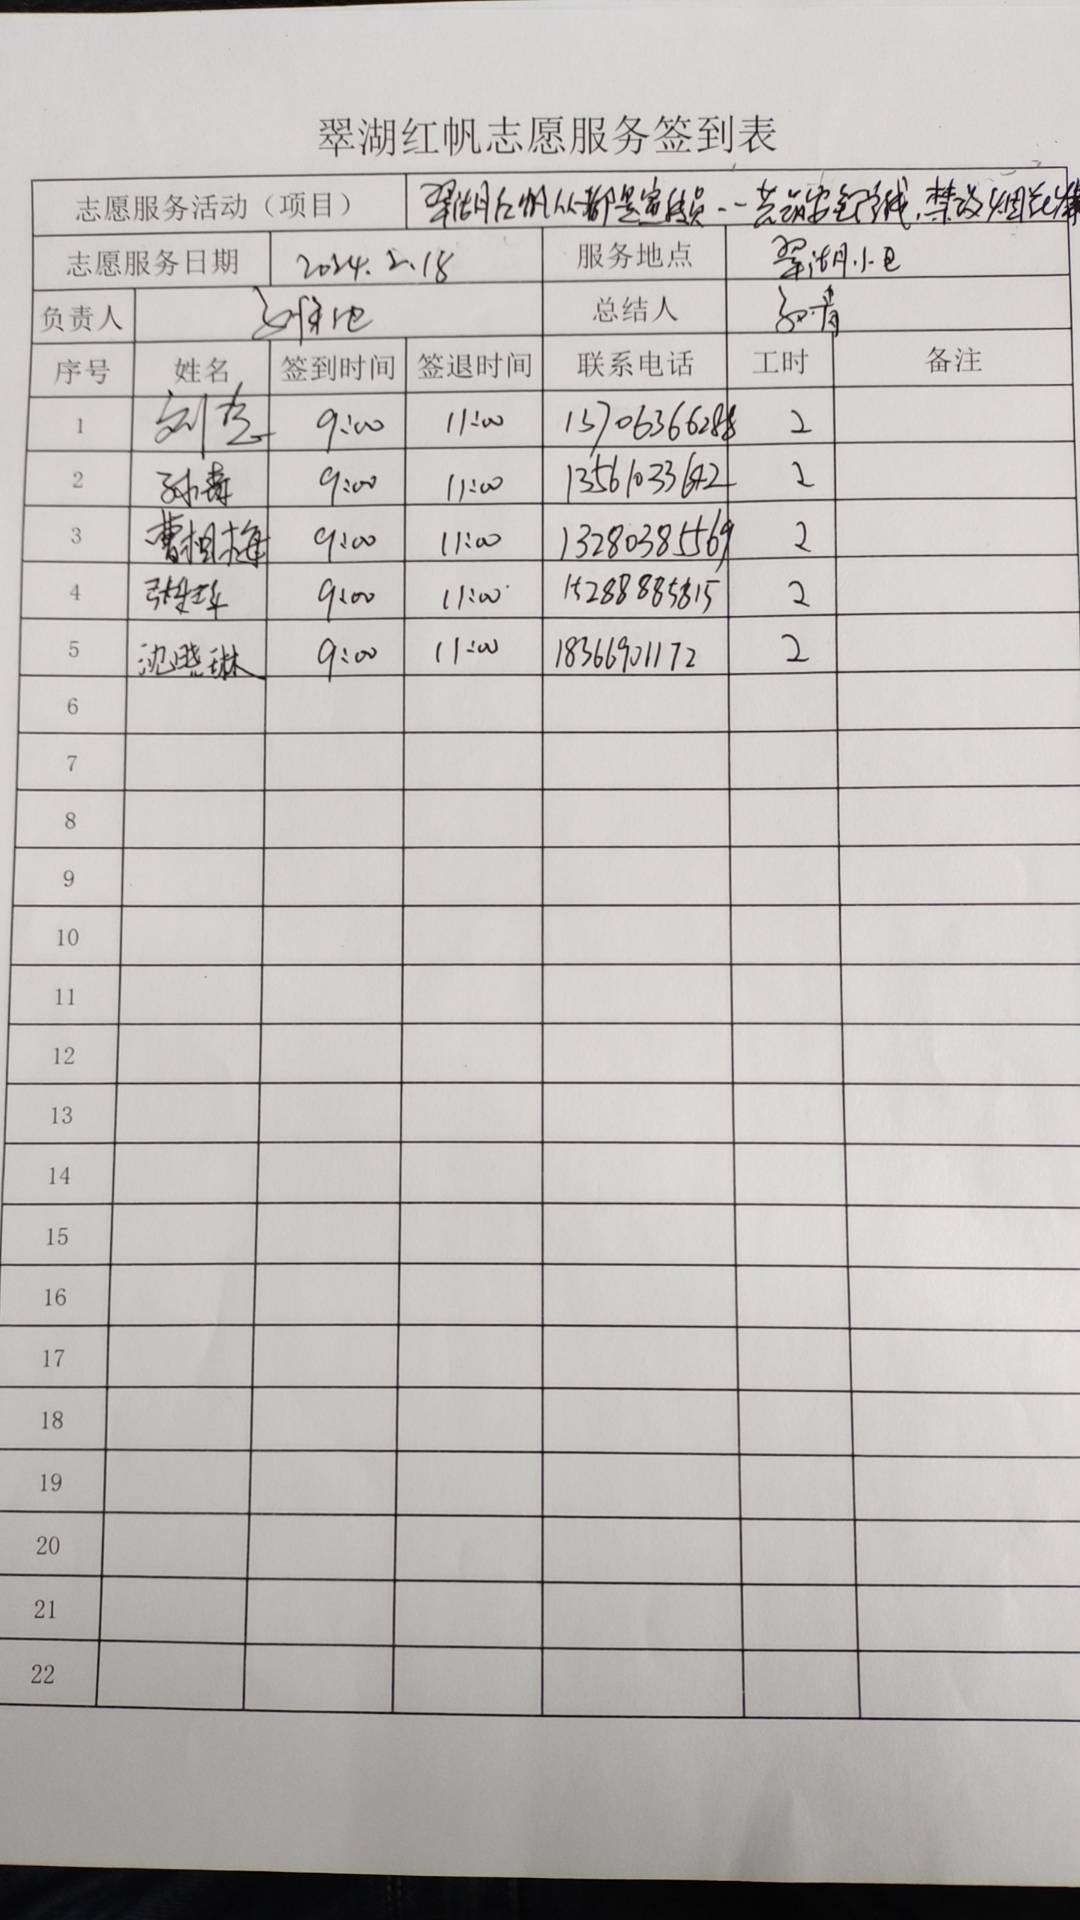 翠湖红帆志愿服务签到表
志愿服务活动（项目） 翠湖红帆人人都是宣传员 禁放烟花
志愿服务日期 2024.2.18 服务地点 翠湖小区
负责人 总结人
序号 姓名 签到时间 签退时间 联系电话 工时 备注
1 9:00 11:00 2
2 9:00 11:00 2
3 曹桂梅 9:00 11:00 13280385569 2
4 9:00 11:00 15288885815 2
5 沈晓琳 9:00 11:00 18366901172 2
6
7
8
9
10
11
12
13
14
15
16
17
18
19
20
21
22